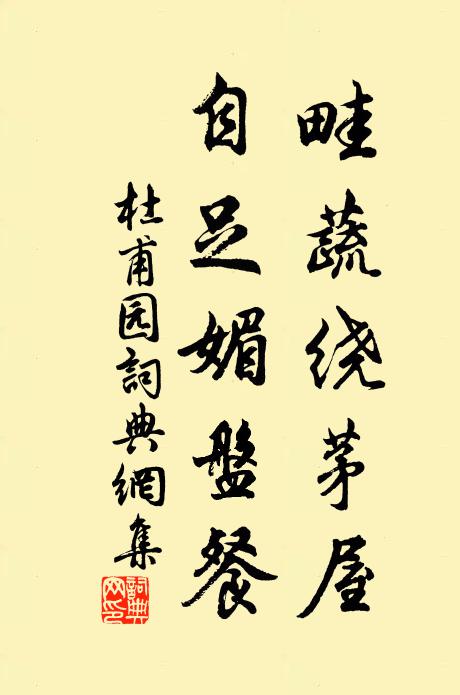 畦蔬绕茅屋
自足媚盤餐
杜甫园詞典網集
詞典网印